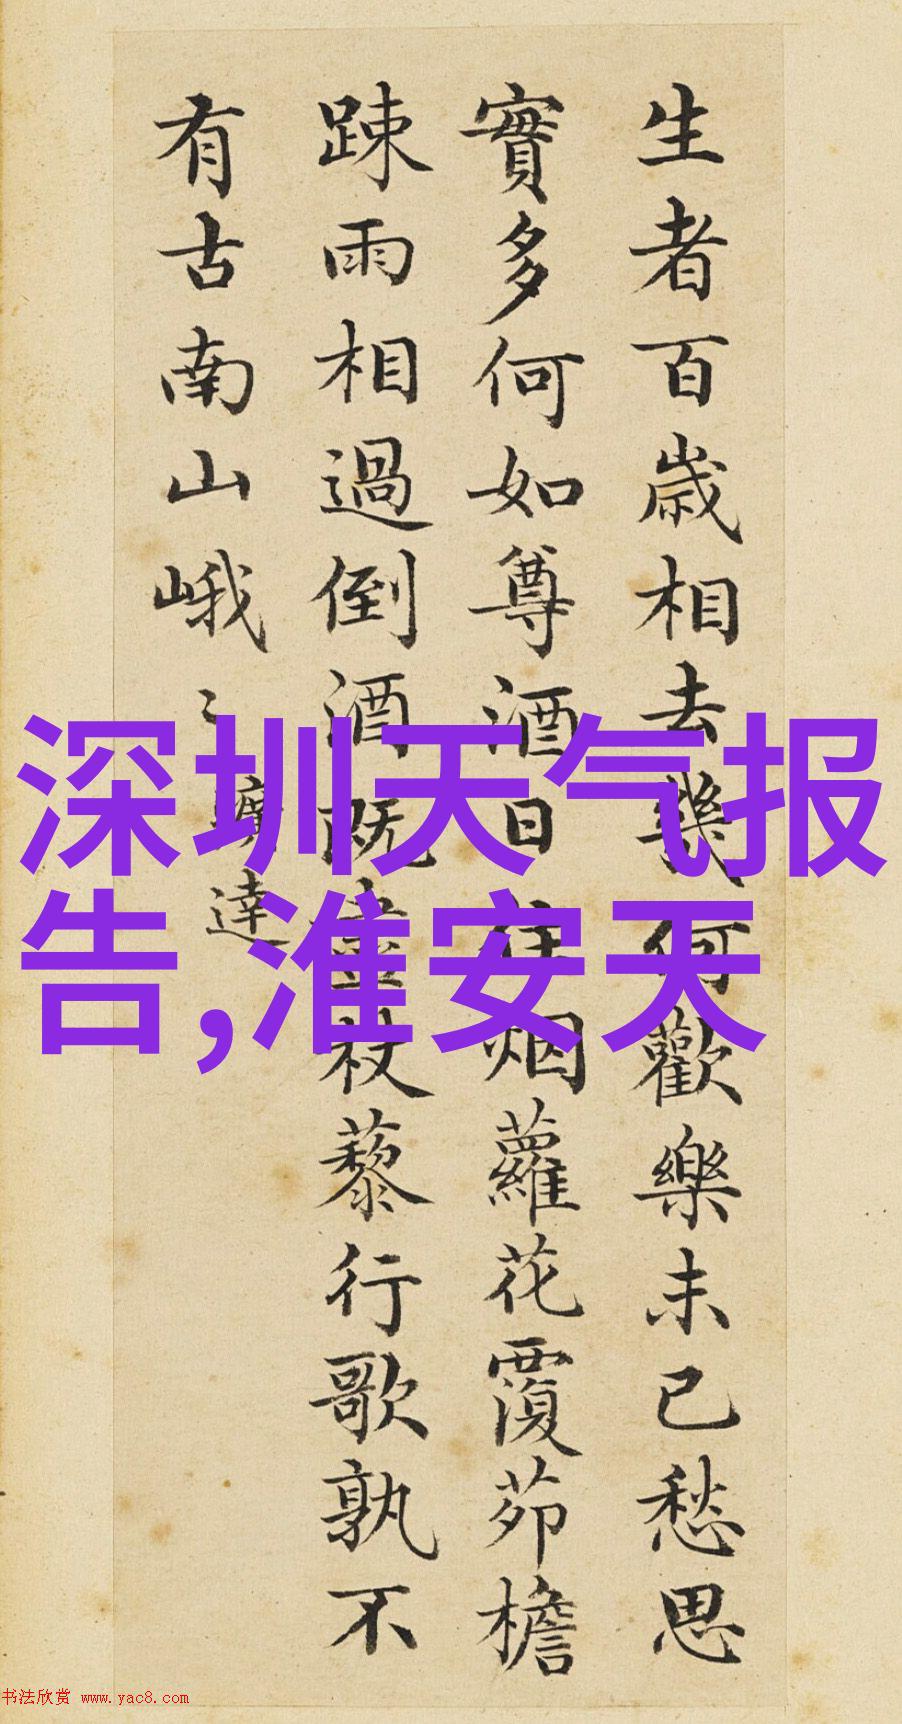 生者百歳相去幾何歡樂未已愁思
實多何如尊酒日往烟蘿花覆茆檐
踈雨相過倒酒既盡杖藜行歌孰不
有古南山峨〻
曠達
深圳天气报
告,淮安天
书法欣赏 www.yac8.com